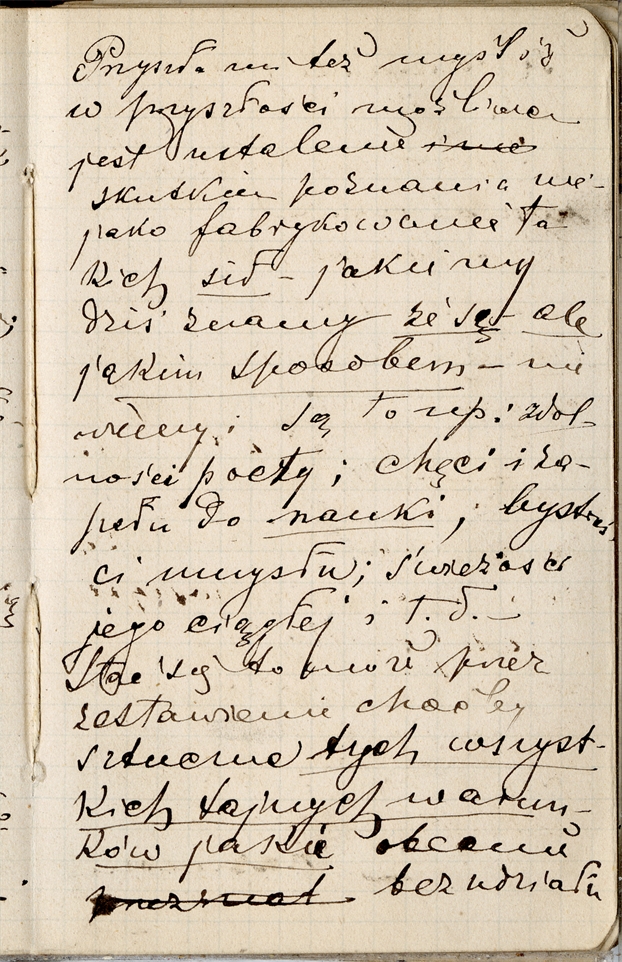 Przyszła mi też myśl iż
w przyszłości możliwem
jest ustalenie
skutkiem poznania nie-
jako fabrykowanie ta
kich sił – jakie my
dziś znamy że są – ale
jakim sposobem – nie
wiemy; są to np: zdol-
ności poety; chęci i za-
pału do nauki, bystroś
ci umysłu; świeżości
jego ciągłej i t. d. –
Stać się to może przez
zestawienie choćby
sztuczne tych wszyst-
kich tajnych warun-
ków jakie obecnie
bez udziału